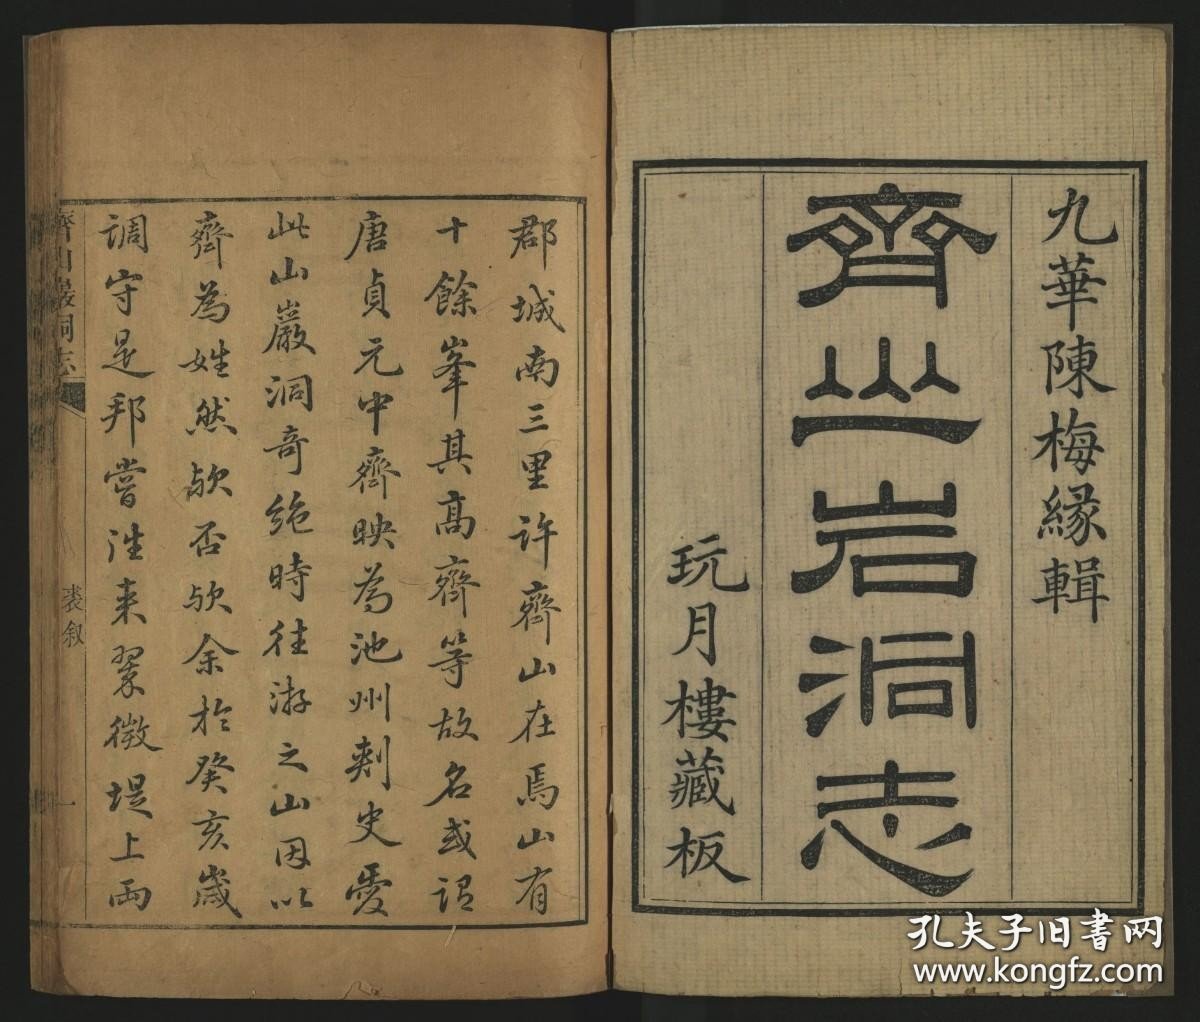 九華陳梅緣輯
齊山岩洞志
玩月樓藏板
郡城南三里許齊山在焉山有
十餘峯其高齊等故名或謂
唐貞元中齊映為池州刺史愛
此山巖洞奇絶時往游之山因以
齊為姓然歟否歟余於癸亥歲
調守是邦嘗往来翠微堤上両
齊山巖洞志
裘叙
一
孔夫子旧书网
www.kongfz.com